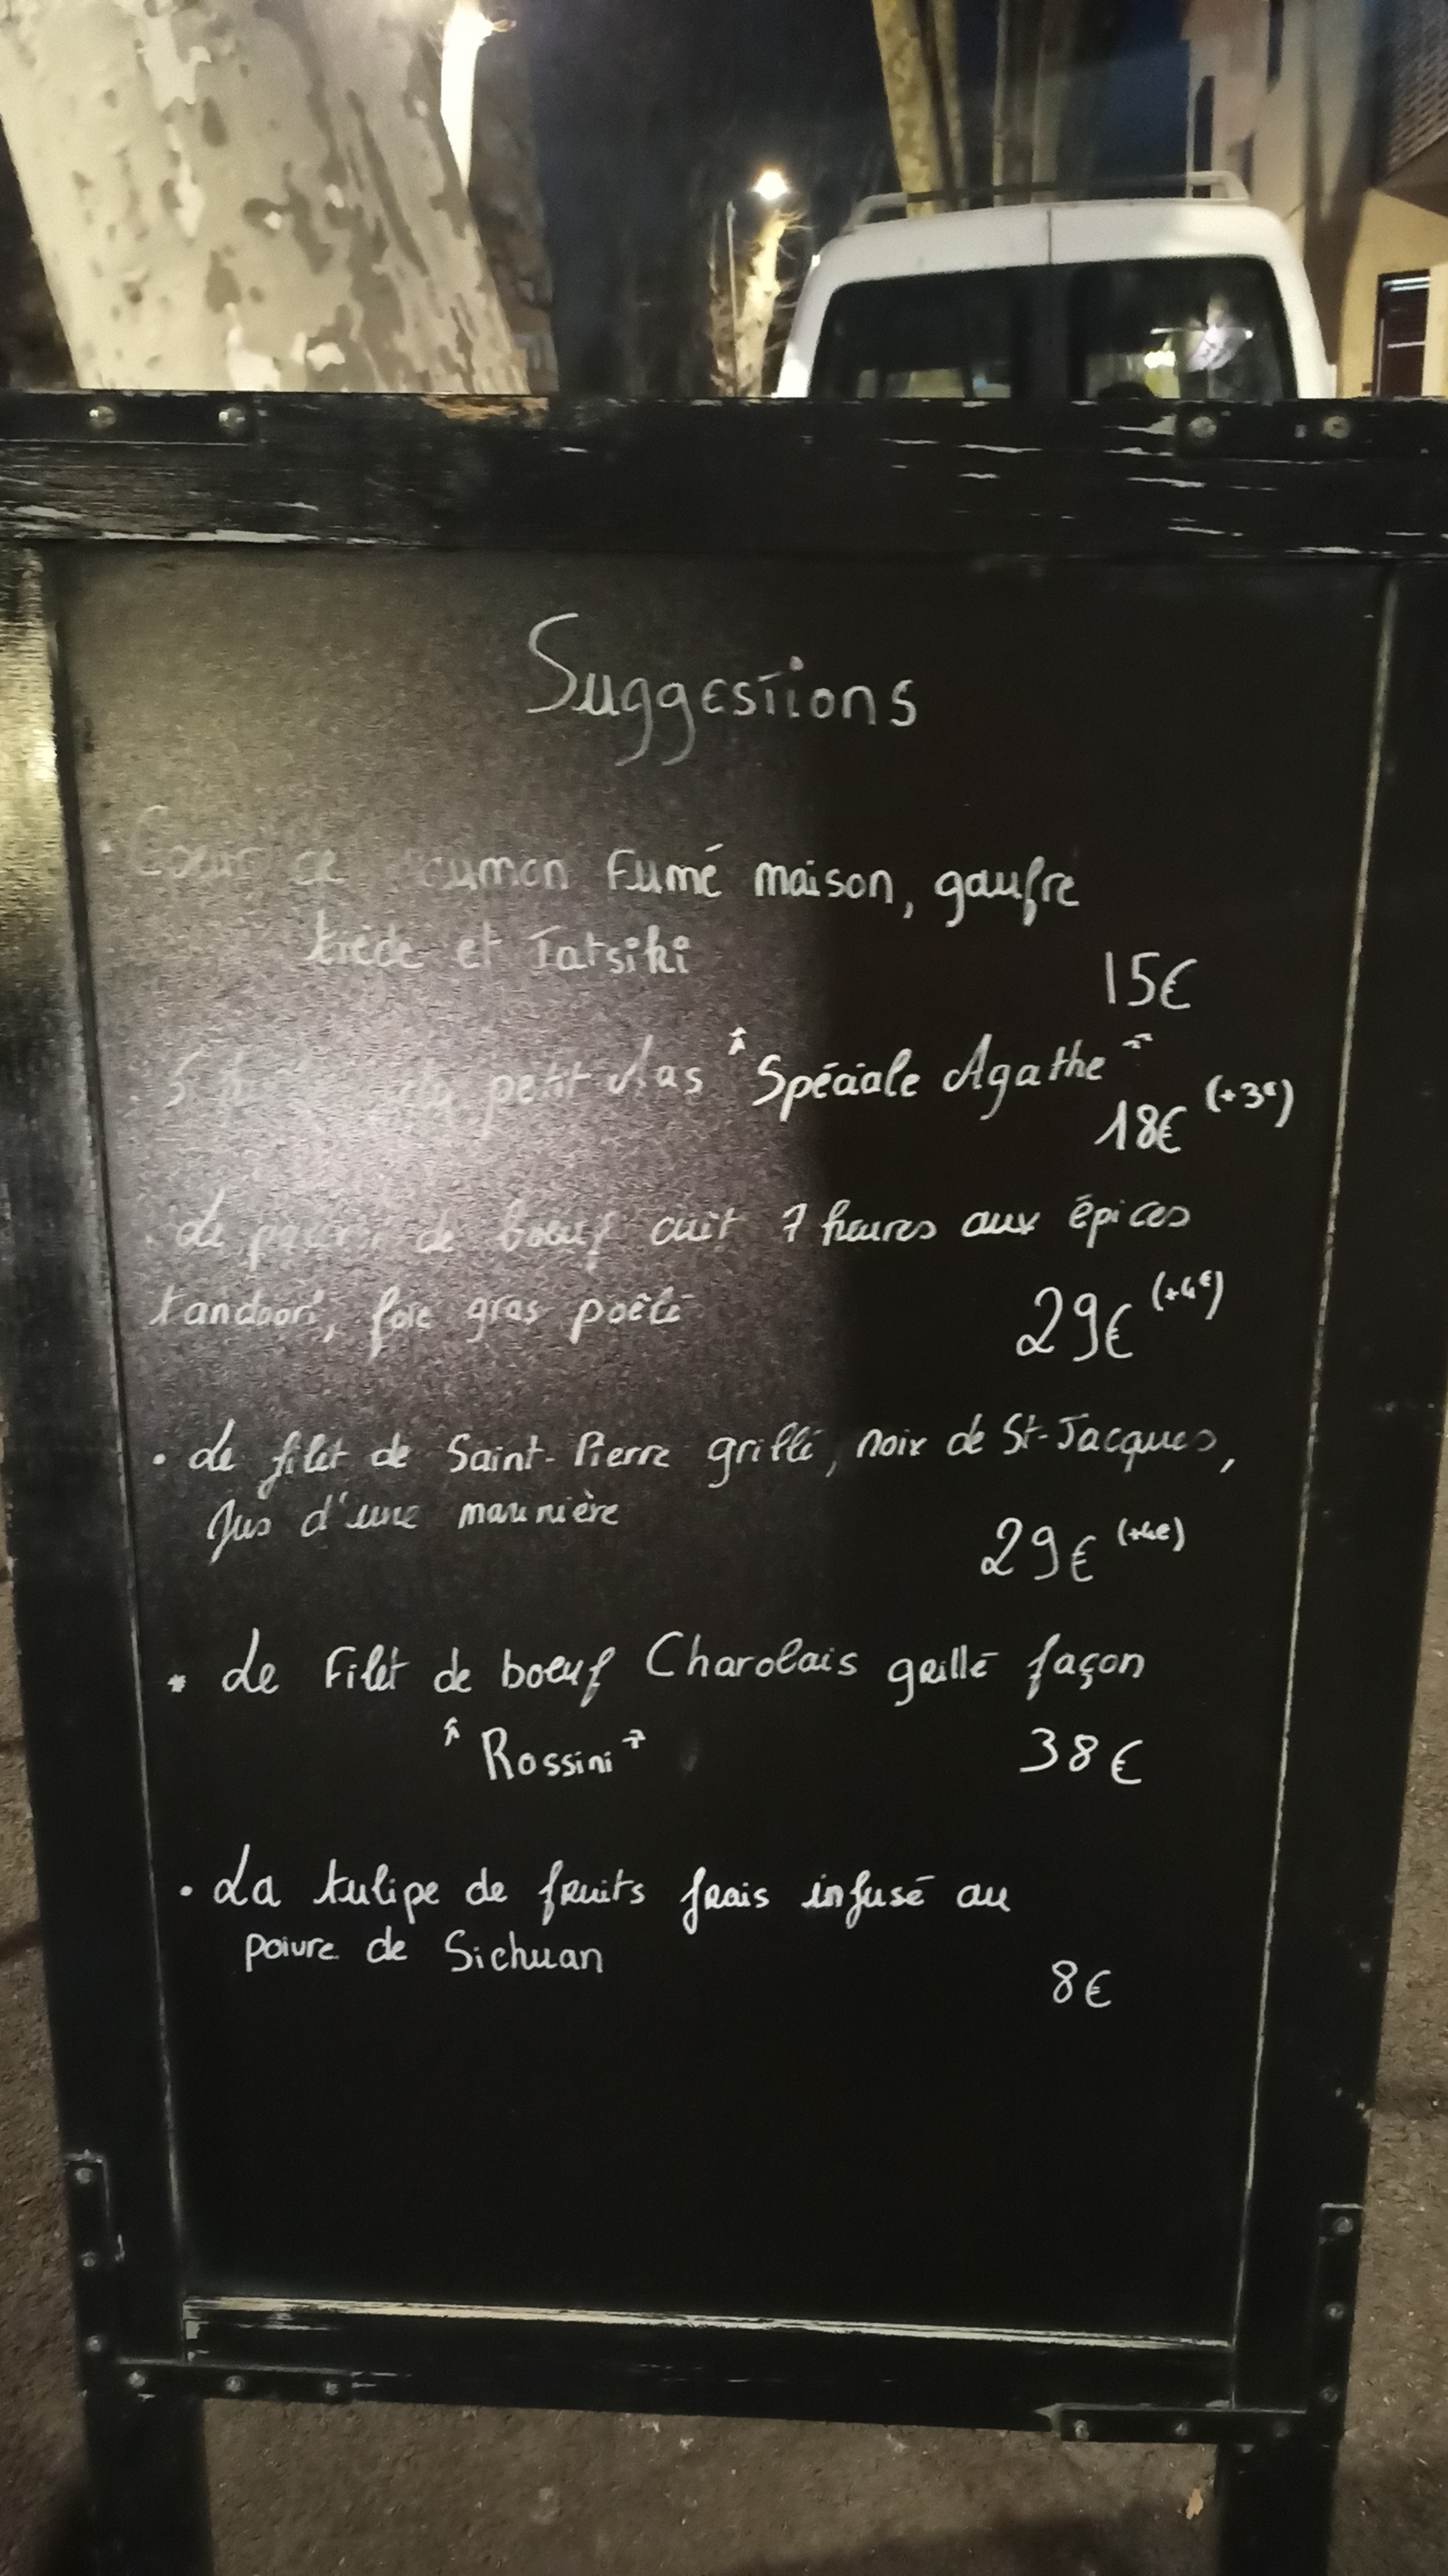 Suggestions
· Coeur de saumon Fumé maison, gaufre
tiède et Tatsiki
15€
petit Mas "Spéciale Agathe"
18€ (+3€)
· Le de boeuf cuit 7 heures aux épices
tandoori, foie gras poêlé
29€ (+4€)
· Le filet de Saint-Pierre grillé, noix de St-Jacques,
Jus d'une maunière
29€ (+4€)
* Le Filet de boeuf Charolais grillé façon
"Rossini" 38€
· La tulipe de fruits frais infusé au
poivre de Sichuan
8€